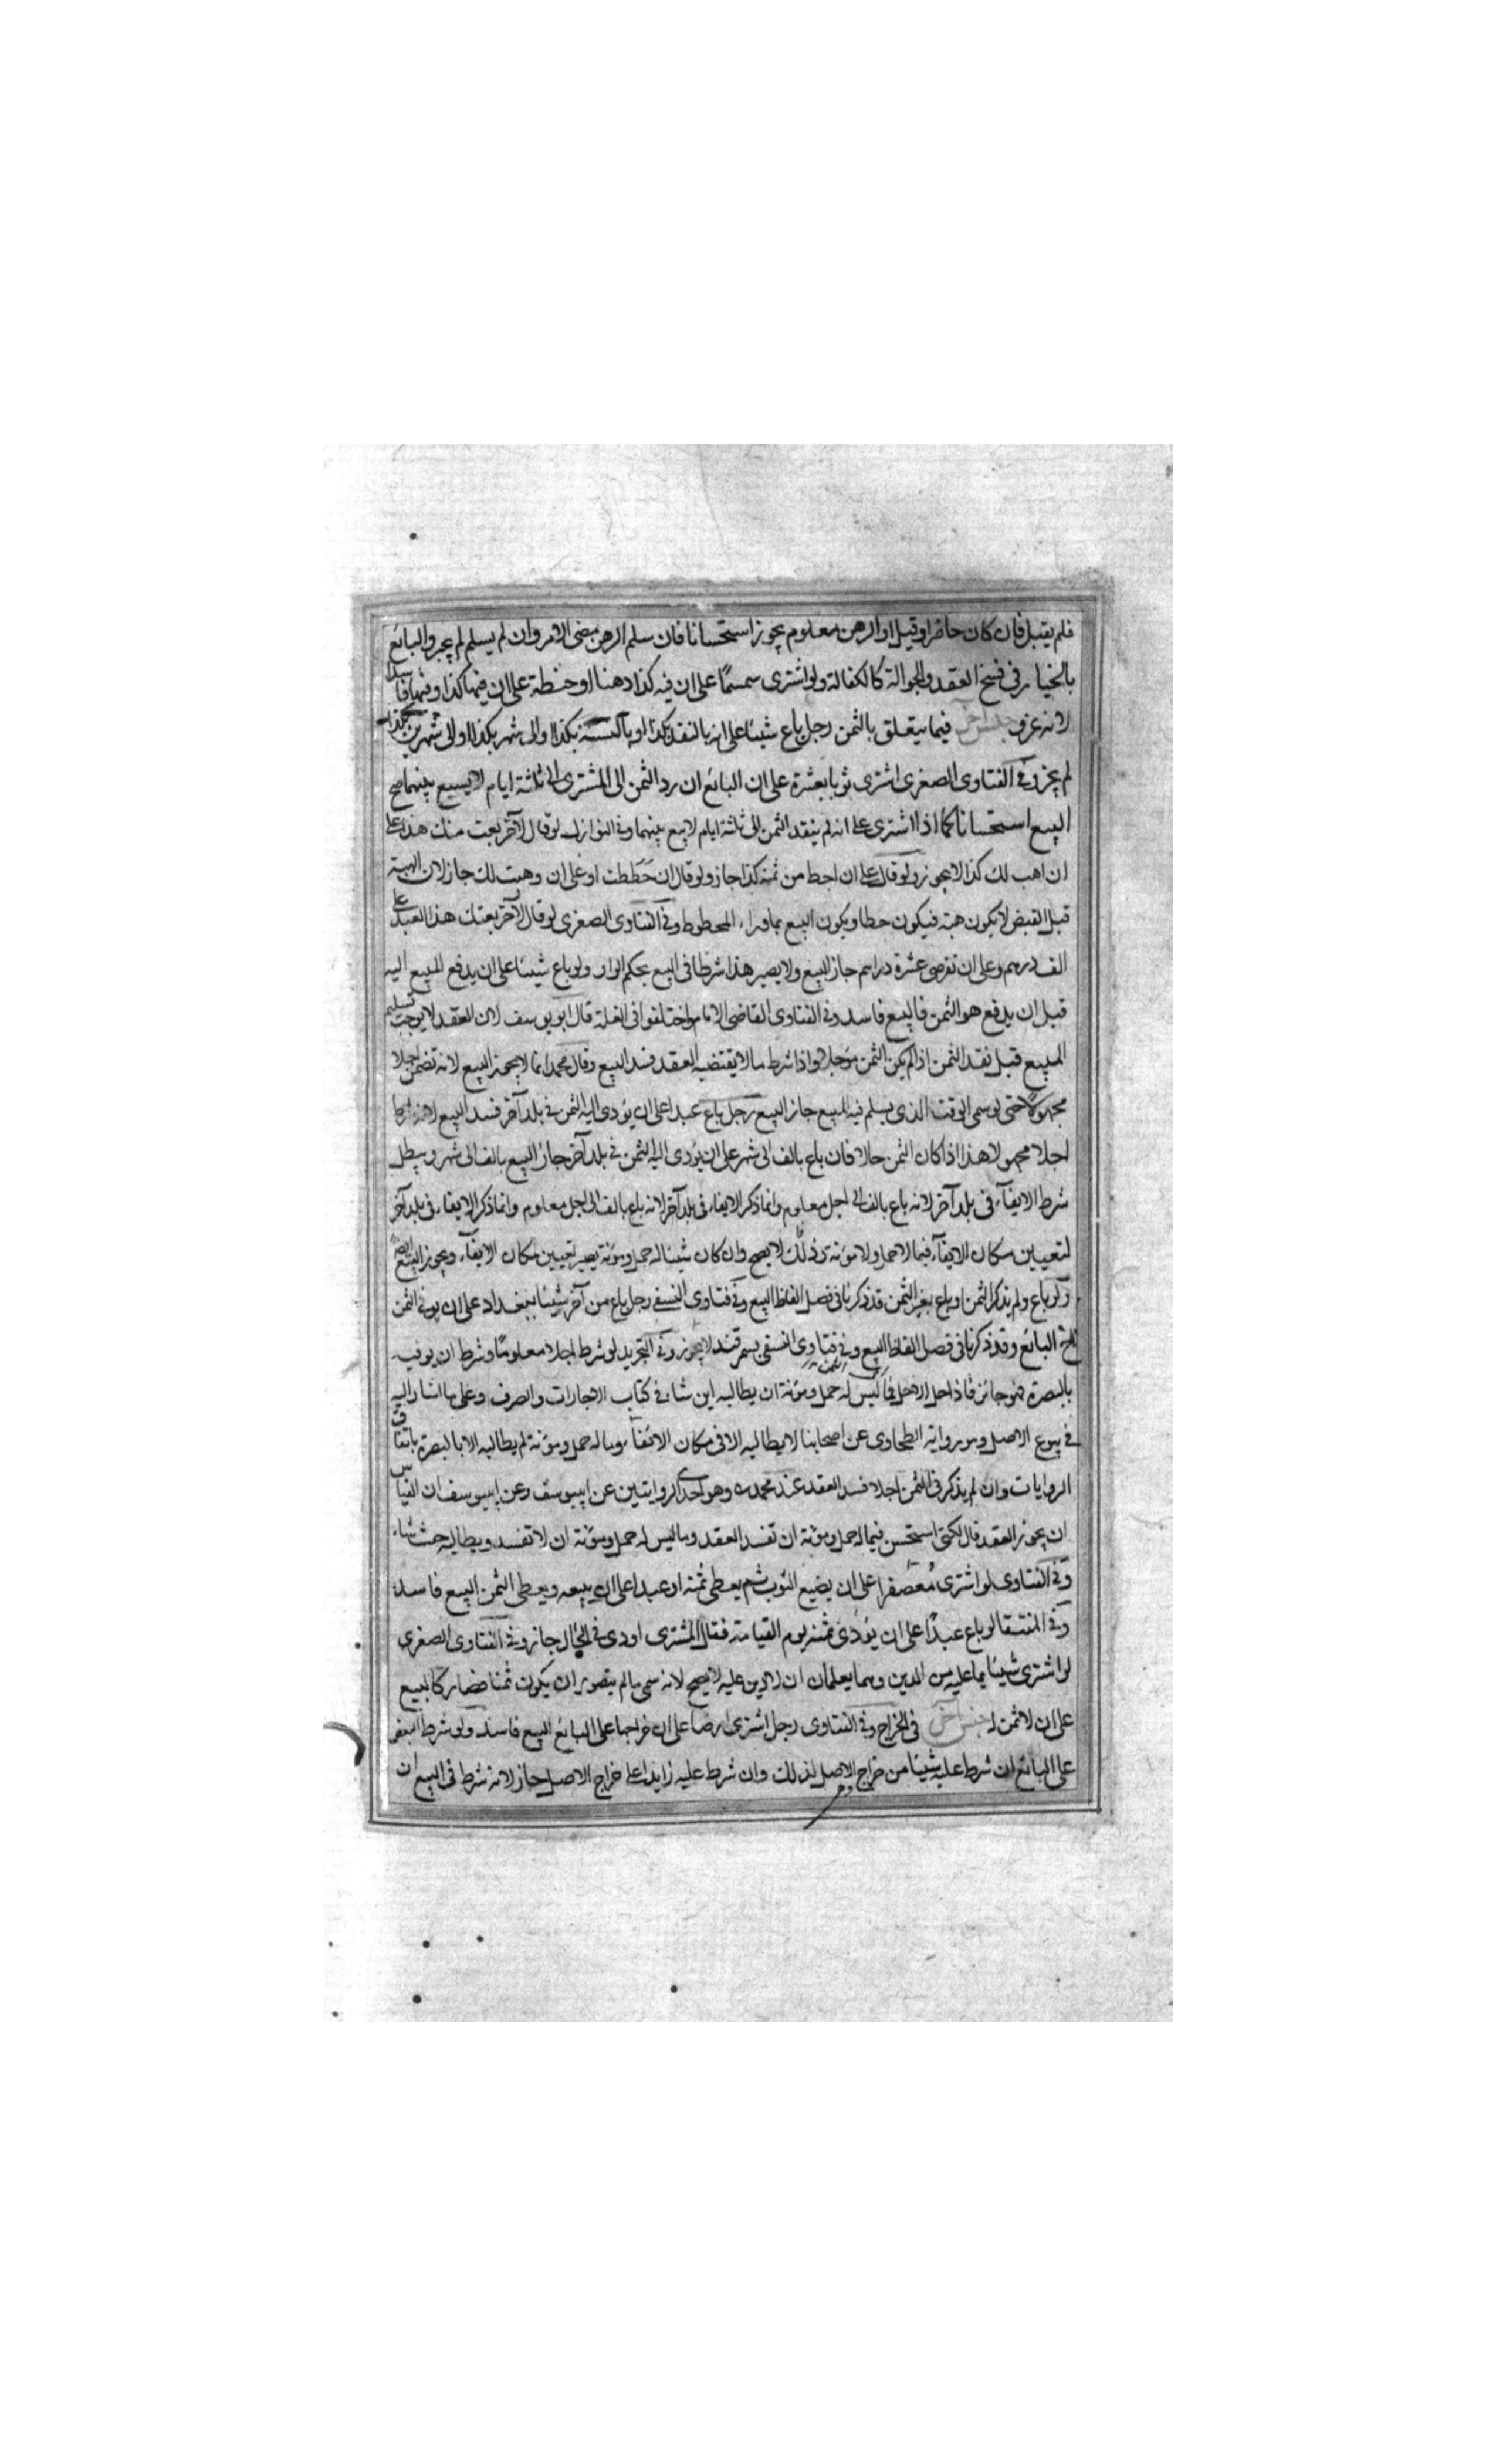 فلم يقبل فان كان حاضرا وقيل او الرهن معلوم يجوز استحسانا فان سلم الرهن مضى الامر وان لم يسلم لم يجبر والبائع
بالخيار في فسخ العقد والحوالة كالكفالة ولو اشترى سمسمًا على ان فيه كذا دهنا او حنطة على ان فيها كذا وفيها فاسد
لانه غرور جنس آخر فيما يتعلق بالثمن رجل باع شيئا على انه بالنقد بكذا او بالنسئة بكذا والى شهر بكذا او الى شهرين بكذا
لم يجز وفي الفتاوى الصغرى اشترى ثوبا بعشرة على ان البائع ان رد الثمن الى المشترى الى ثلثة ايام لا يبيع بينهما صح
البيع استحسانا كما اذا اشترى على انه لم ينقد الثمن الى ثلثة ايام لا بيع بينهما وفي النوازل لو قال لآخر بعت منك هذا على
ان اهب لك كذا لا يجوز ولو قال على ان احط من ثمنه كذا جاز ولو قال ان حططت او على ان وهبت لك جاز لان الهبة
قبل القبض لا يكون هبة فيكون حطا ويكون البيع بما وراء المحطوط وفي الفتاوى الصغرى لو قال لآخر بعتك هذا العبد على
الف درهم وعلى ان تقرضى عشرة دراهم جاز البيع ولا يصير هذا شرطا في البيع بحكم الواو ولو باع شيئا على ان يدفع المبيع اليه
قبل ان يدفع هو الثمن فالبيع فاسد وفي الفتاوى القاضى الامام واختلفوا في العلة قال ابو يوسف لان العقد لا يوجب تسليم
المبيع قبل نقد الثمن اذا لم يكن الثمن مؤجلا واذا شرط مالا يقتضيه العقد فسد البيع وقال محمد انما لا يجوز البيع لانه تضمن اجلا
مجهولا حتى لو سمى الوقت الذى يسلم فيه المبيع جاز البيع رجل باع عبدا على ان يؤدى اليه الثمن في بلد آخر فسد البيع لانه شرط
اجلا مجهولا هذا اذا كان الثمن حالا فان باع بالف الى شهر على ان يؤدى اليه الثمن في بلد آخر جاز البيع بالف الى شهر ويبطل
شرط الايفآء في بلد آخر لانه باع بالف الى اجل معلوم وانما ذكر الايفاء في بلد آخر لانه باع بالف الى اجل معلوم وانما ذكر الايفاء في بلد آخر
لتعيين مكان الايفآء فيما لا حمل ولا مؤنة وذلك لا يصح وان كان شيئا له حمل ومؤنة يصير تعيين مكان الايفآء ويجوز البيع ايضا
ولو باع ولم يذكر الثمن او باع بغير الثمن قد ذكرنا في فصل الفاظ البيع وفي فتاوى النسفى رجل باع من آخر شيئا ببغداد على ان يوفى الثمن
البائع وقد ذكرنا في فصل الفاظ البيع وفي فتاوى النسفى بسمرقند لا يجوز وفي التجريد لو شرط اجلا معلومًا وشرط ان يوفيه
بالبصرة فهو جائز فاذا حل الاجل فما ليس له حمل ومؤنة ان يطالبه اين شاء في كتاب الاجارات والصرف وعلى ما اشار اليه
في بيوع الاصل وهو رواية الطحاوى عن اصحابنا لا يطالبه الا في مكان الايفآ وما له حمل ومؤنة لم يطالبه الا بالبصرة باتفاق
الروايات وان لم يذكر في الثمن اجلا فسد العقد عند محمد وهو احدى الروايتين عن ابي يوسف وعن ابي يوسف ان القياس
ان يجوز العقد قال لكنى استحسن فيما له حمل ومؤنة ان تفسد العقد وما ليس له حمل ومؤنة ان لا تفسد ويطالبه حيث شاء
وفي الفتاوى لو اشترى مُعصفرا على ان يضيع الثوب ثم يعطى ثمنه او عبدا على ان يبيعه ويعطى الثمن البيع فاسد
وفي المنتقا لو باع عبدًا على ان يؤدى ثمنه يوم القيامة فقال المشترى اودى في الحال جاز وفي الفتاوى الصغرى
لو اشترى شيئا بما عليه من الدين وهما يعلمان ان لا دين عليه لا يصح لانه سمى مالم يتصور ان يكون ثمنا فصار كالمبيع
على ان لا ثمن له جنس آخر في الخراج وفي الفتاوى رجل اشترى ارضا على ان خراجها على البائع البيع فاسد ولو شرط البعض
على البائع ان شرط عليه شيئا من خراج الاصل لذلك وان شرط عليه زايدا على خراج الاصل جاز لانه شرط في البيع ان